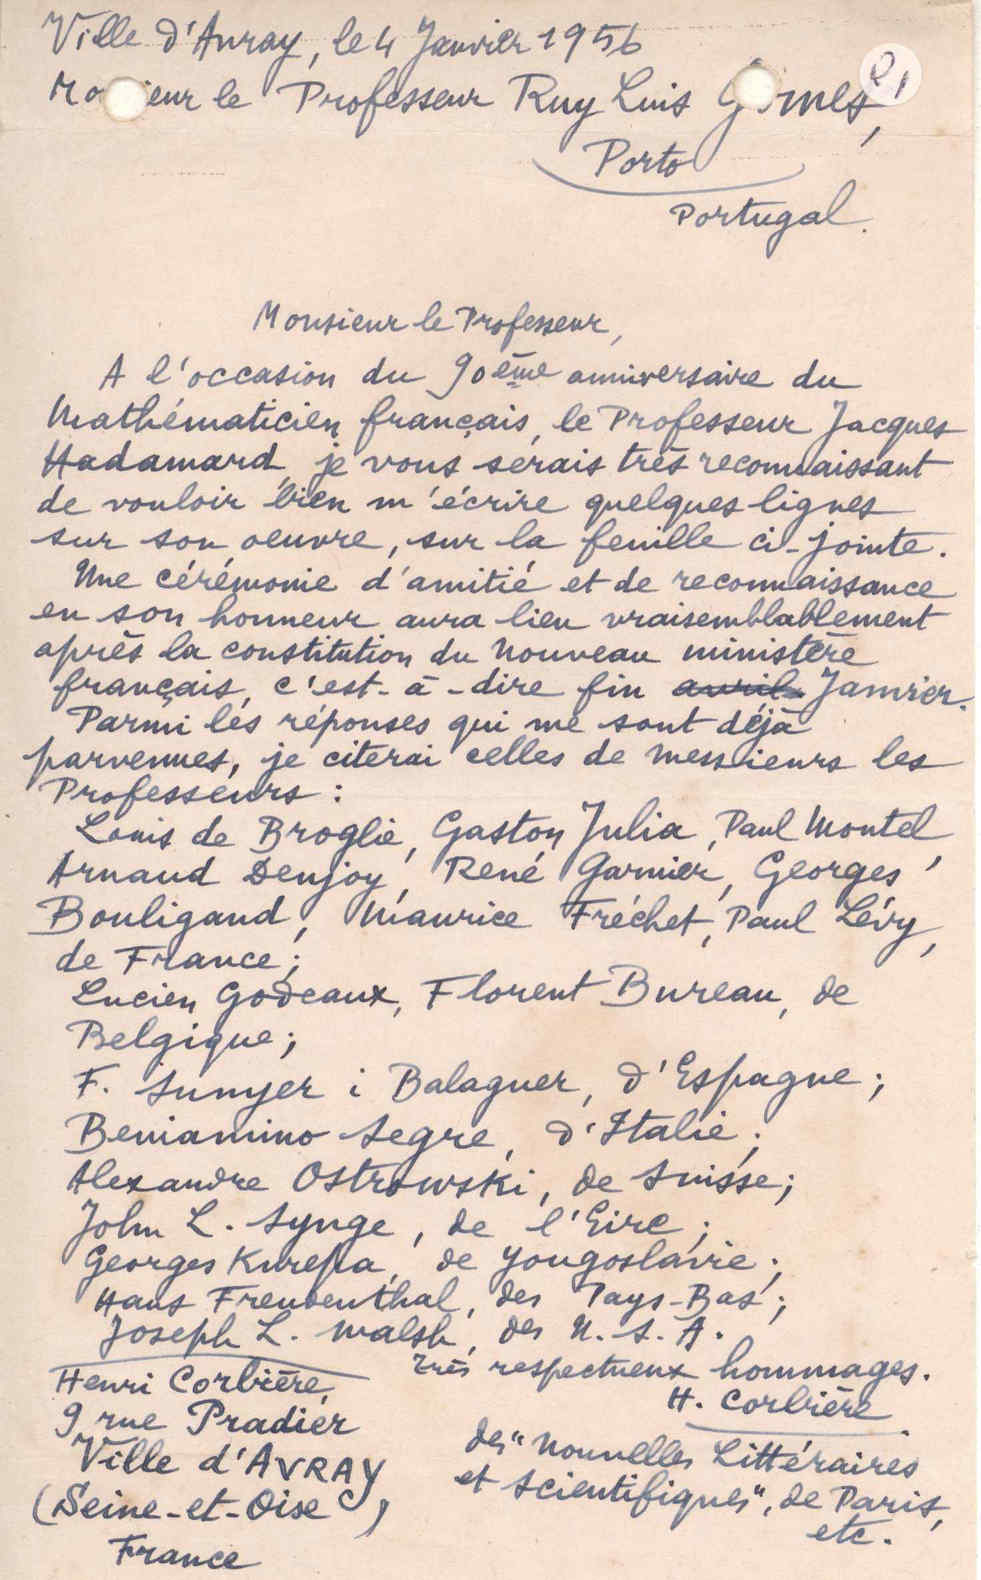 Ville d'Avray, le 4 Janvier 1956
Monsieur le Professeur Ruy Luis Gomes,
Porto
Portugal.
Monsieur le Professeur,
A l'occasion du 90ème anniversaire du
Mathématicien français, le Professeur Jacques
Hadamard, je vous serais très reconnaissant
de vouloir bien m'écrire quelques lignes
sur son oeuvre, sur la feuille ci-jointe.
Une cérémonie d'amitié et de reconnaissance
en son honneur aura lieu vraisemblablement
après la constitution du Nouveau ministère
français, c'est-à-dire fin avril Janvier.
Parmi les réponses qui me sont déjà
parvenues, je citerai celles de Messieurs les
Professeurs :
Louis de Broglie, Gaston Julia, Paul Montel,
Arnaud Denjoy, René Garnier, Georges
Bouligand, Maurice Fréchet, Paul Lévy,
de France ;
Lucien Godeaux, Florent Bureau, de
Belgique ;
F. Sunyer i Balaguer, d'Espagne ;
Beniamino Segre, d'Italie ;
Alexandre Ostrowski, de Suisse ;
John L. Synge, de l'Eire ;
Georges Kurepa, de Yougoslavie ;
Hans Freudenthal, des Pays-Bas ;
Joseph L. Walsh, des U.S.A.
Très respectueux hommages.
H. Corbière
des "Nouvelles Littéraires
et Scientifiques", de Paris,
etc.
Henri Corbière,
9 rue Pradier
Ville d'AVRAY
(Seine-et-Oise)
France